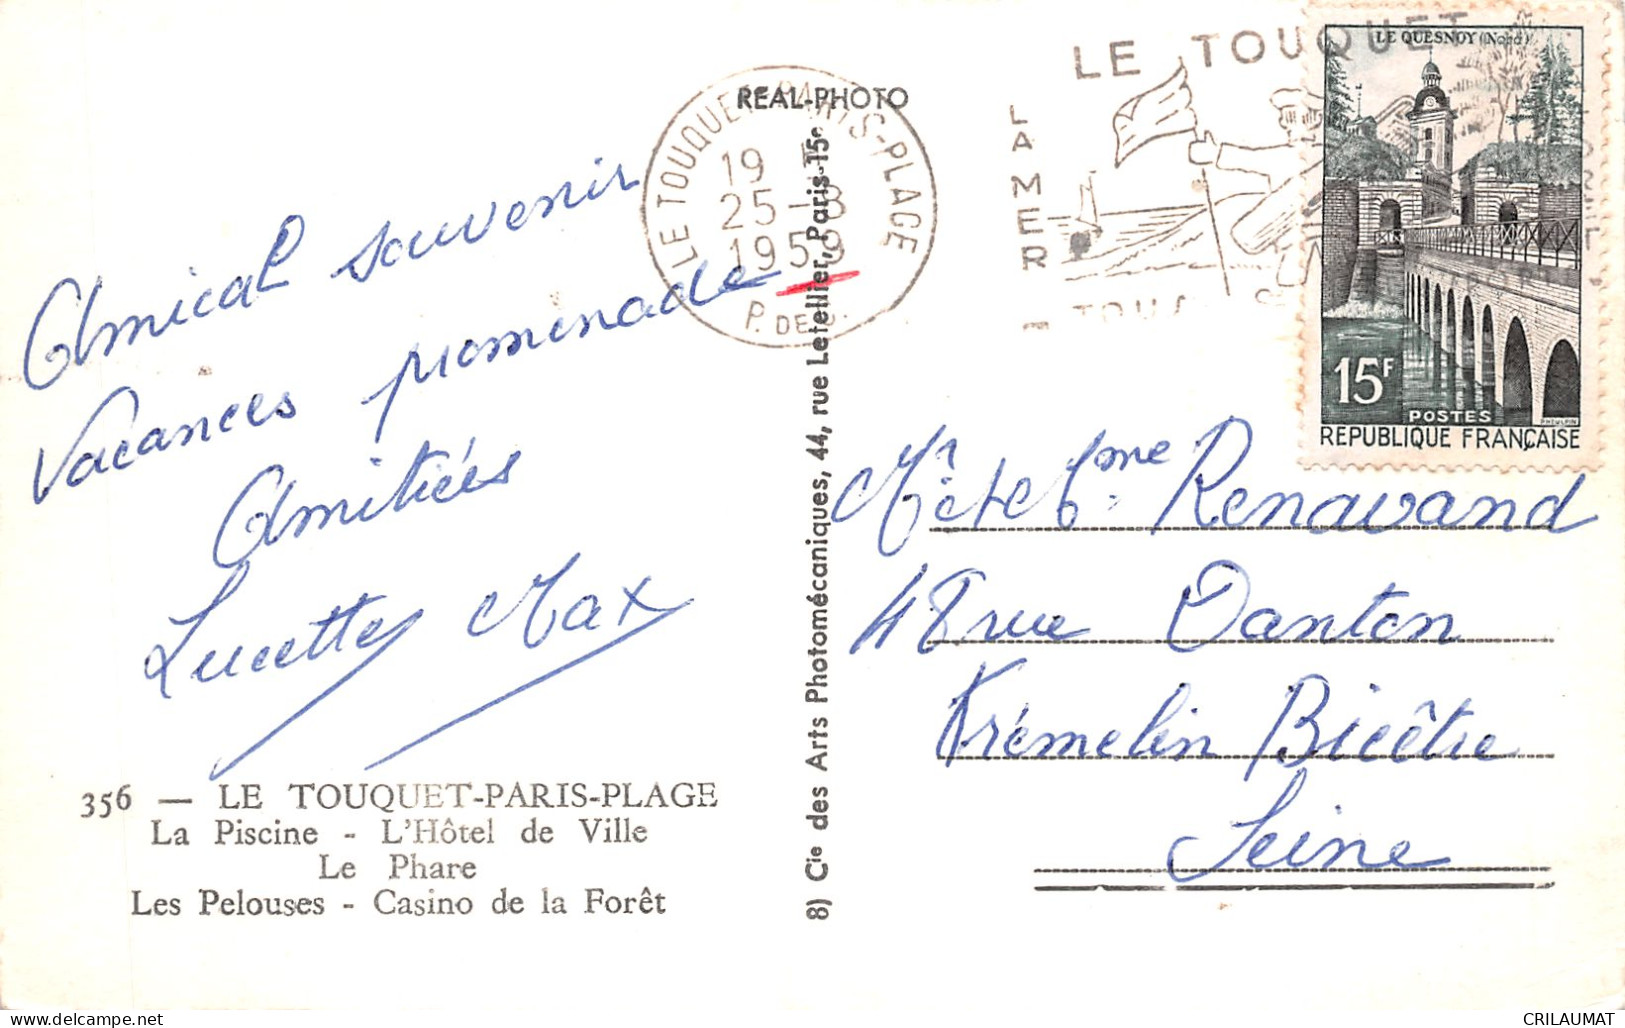 Amical souvenir
Vacances promenade
Amitiés
Lucette Max
356 — LE TOUQUET-PARIS-PLAGE
La Piscine - L'Hôtel de Ville
Le Phare
Les Pelouses - Casino de la Forêt
REAL-PHOTO
8) Cie des Arts Photomécaniques, 44, rue Letellier, Paris-15e
LE TOUQUET-PARIS-PLAGE
19
25-8
195
P. DE C.
LE TOUQUET
LA MER
LE QUESNOY (Nord)
15F
POSTES
RÉPUBLIQUE FRANÇAISE
Mr et Mme Renavand
48 rue Danton
Krémelin Bicêtre
Seine
delcampe.net
CRILAUMAT